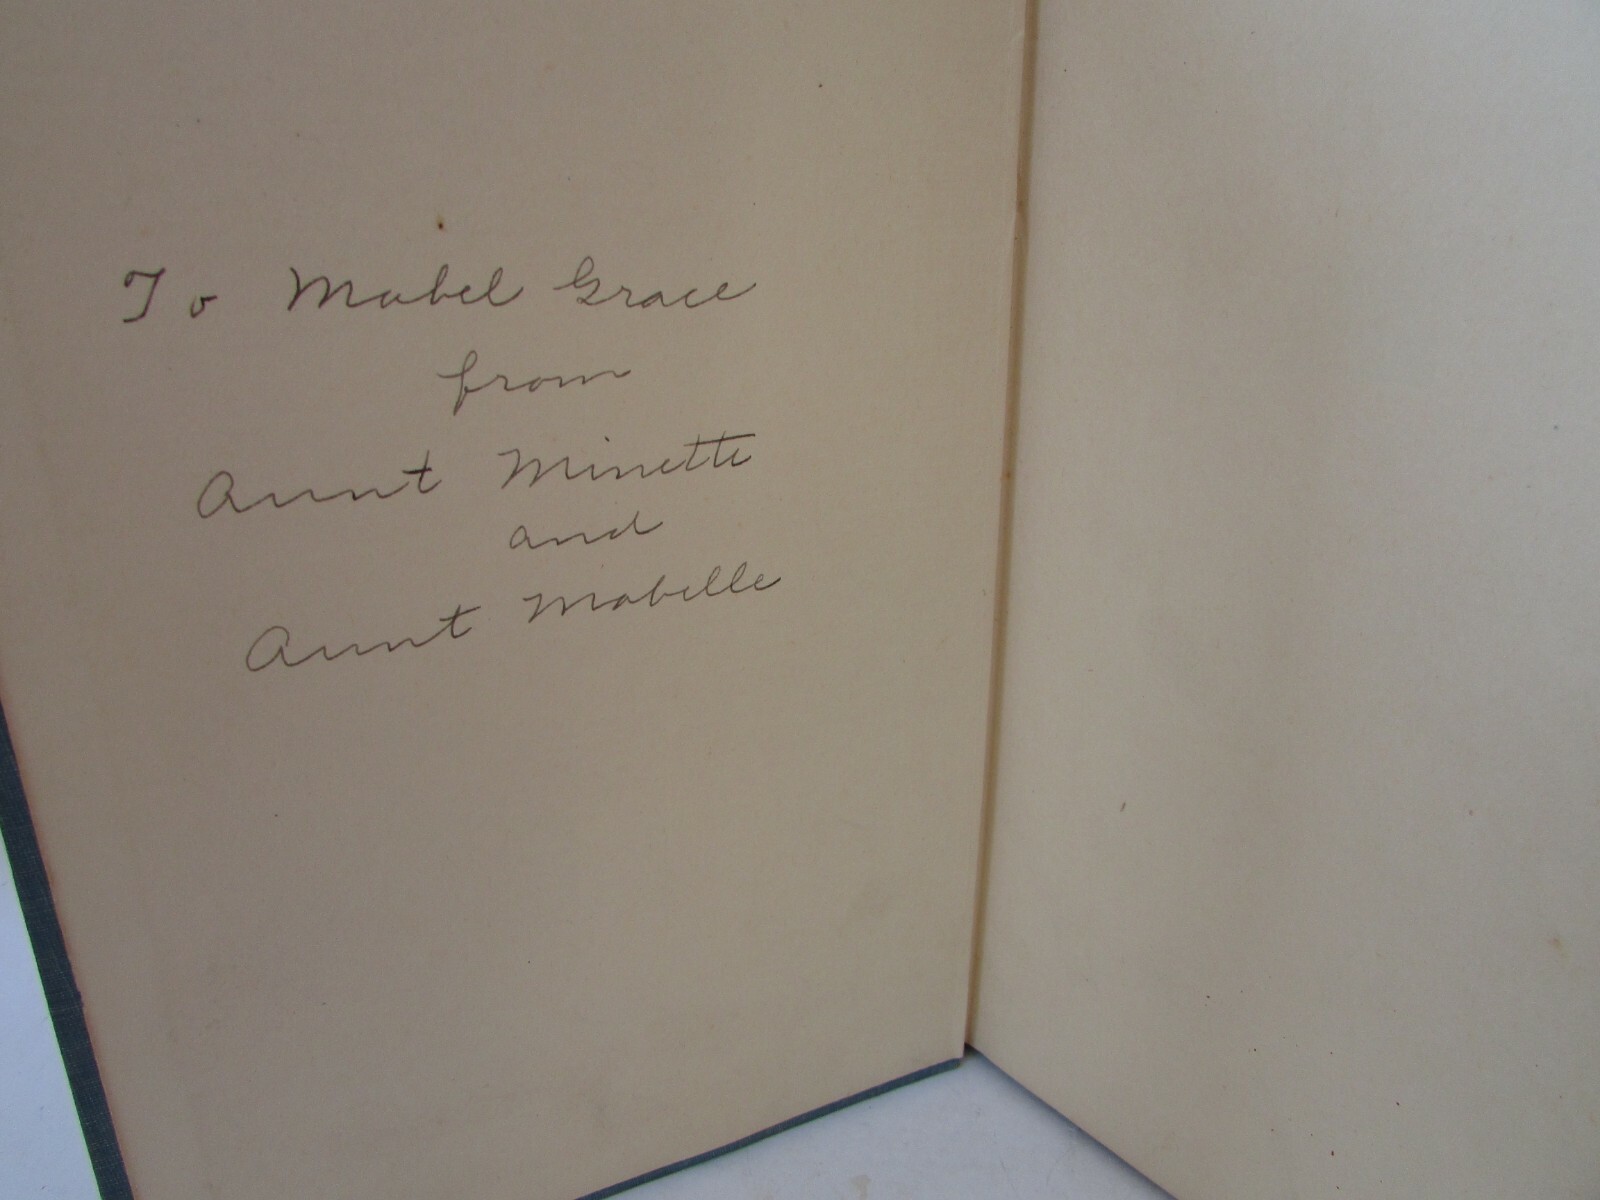 To Mabel Grace
from
Aunt Minette
and
Aunt Mabelle